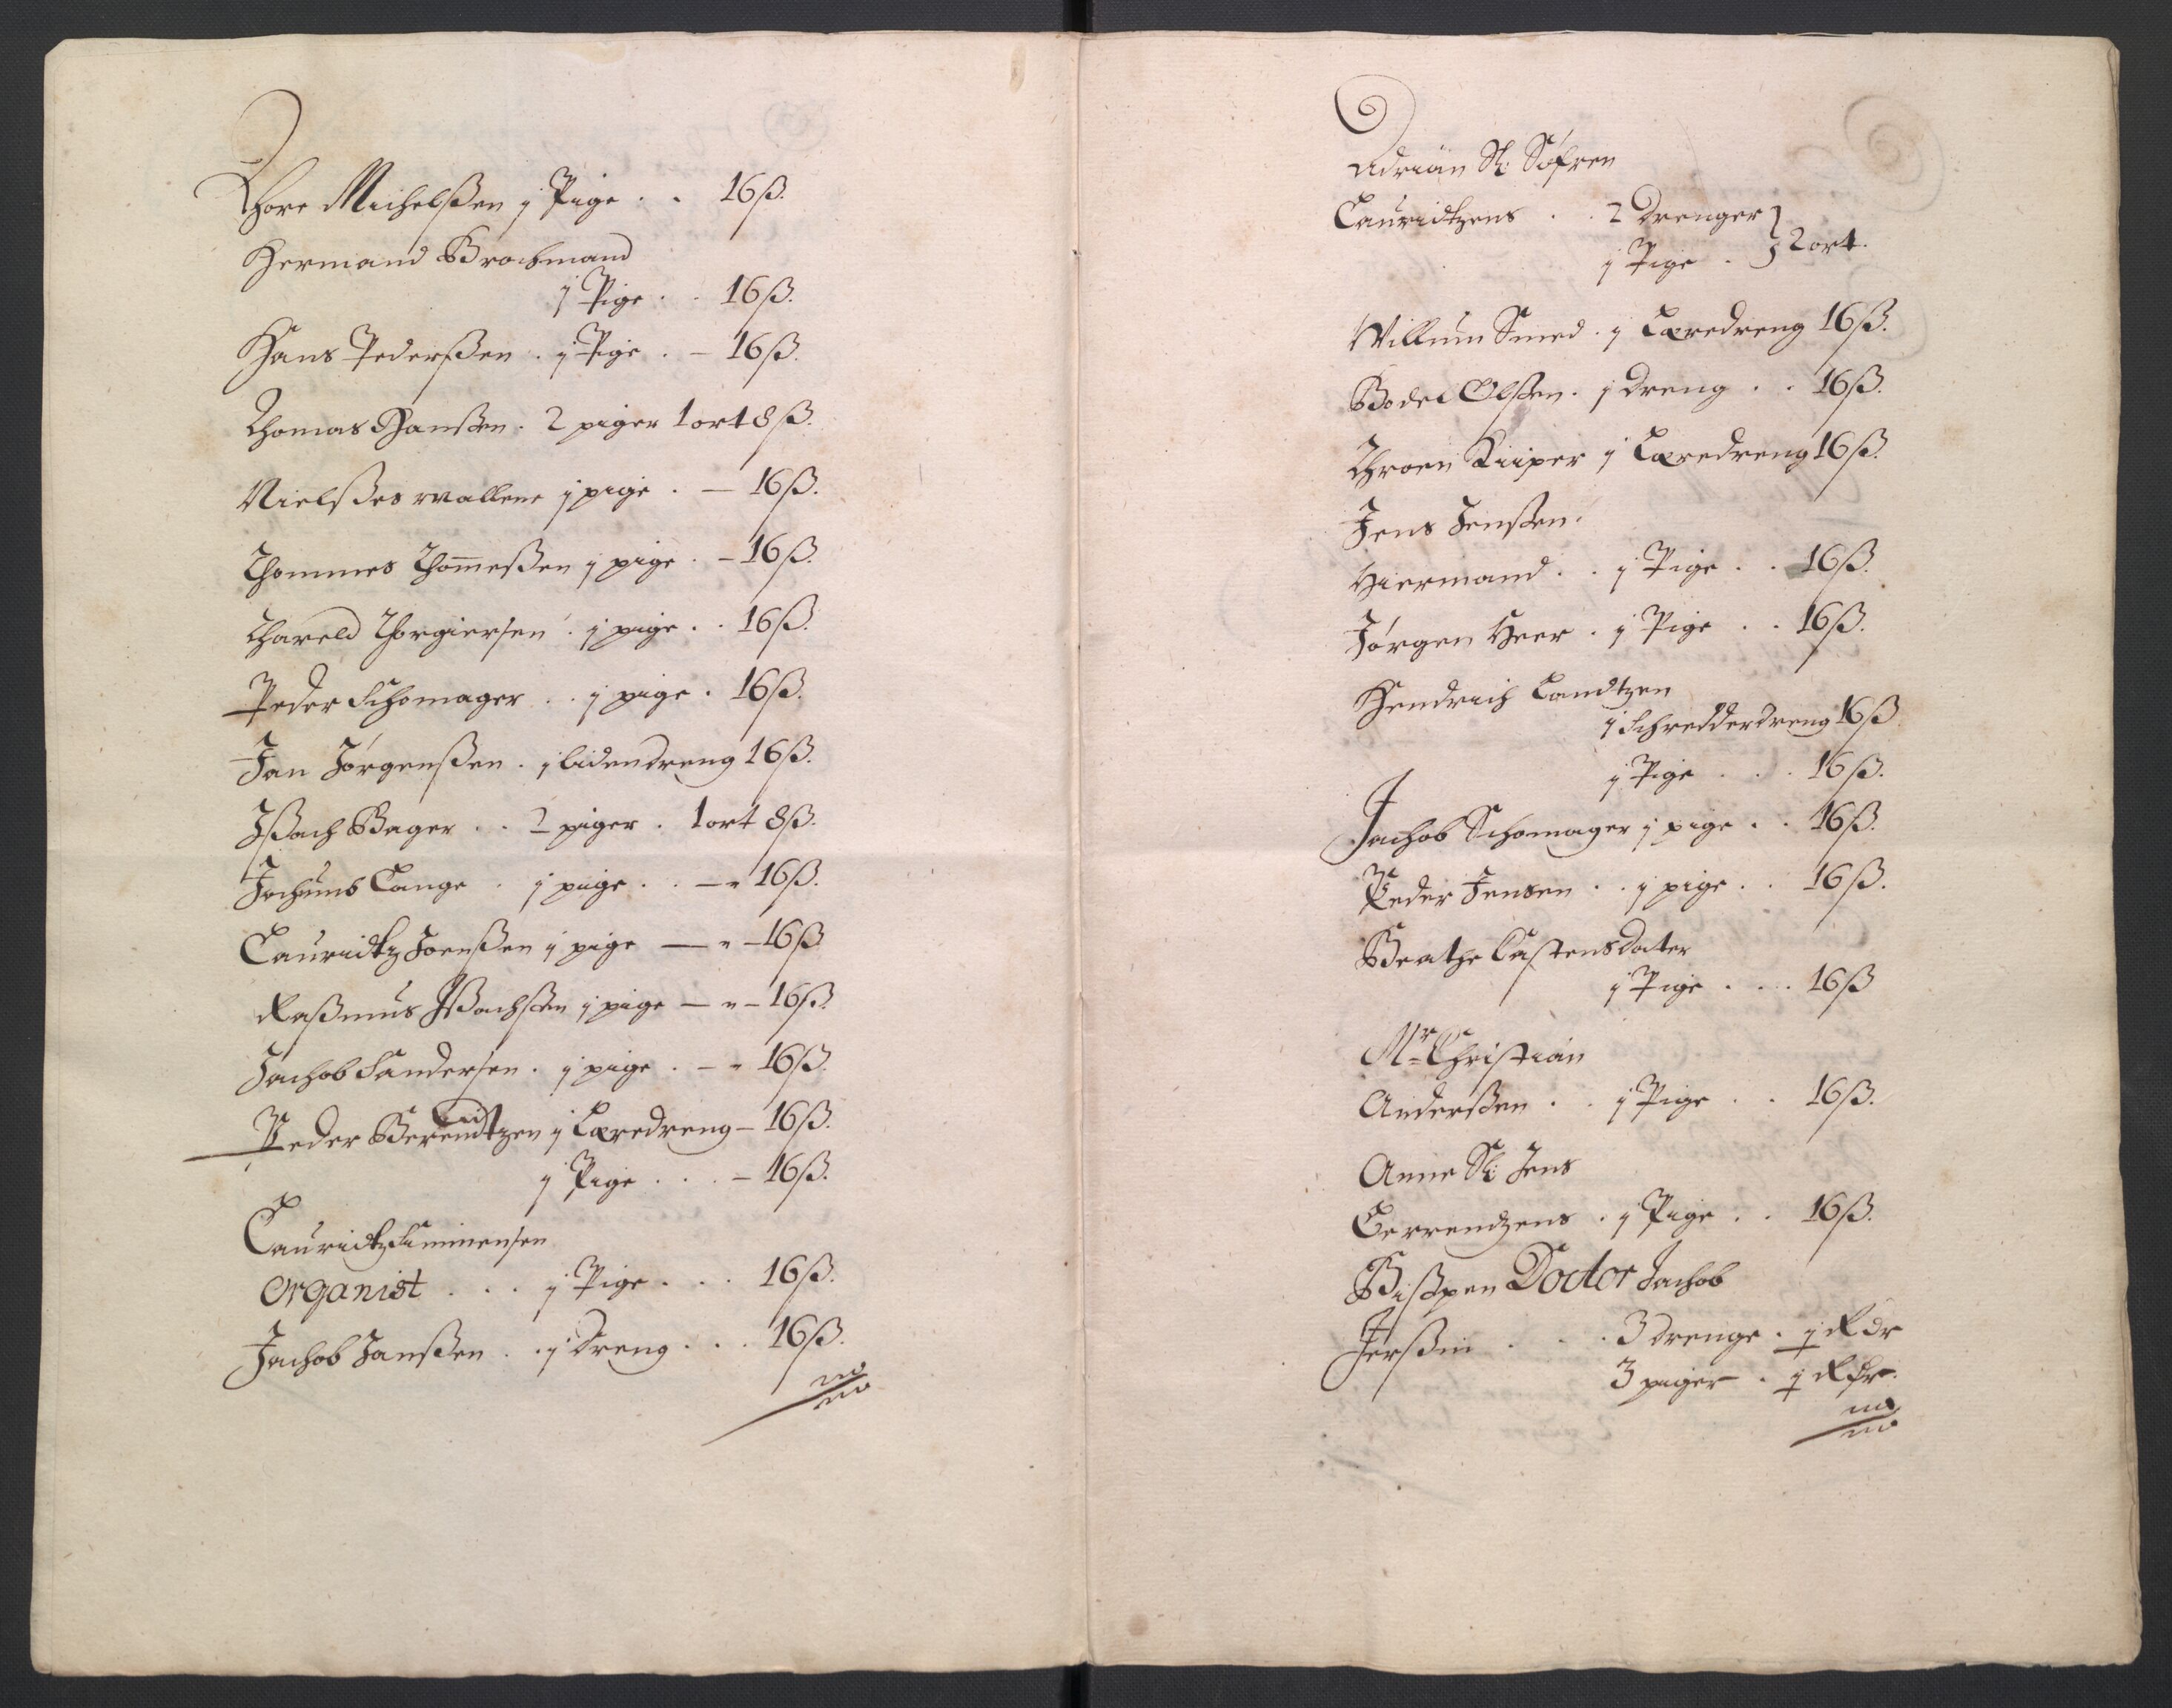 Thore Michelßen j Pige . . 16 ß.
Hermand Brochmand
j Pige . . 16 ß.
Hans Pederßen . j Pige . – 16 ß.
Thomas Hanßen . 2 piger 1 ort 8 ß.
Nielßes wallene j pige . — 16 ß.
Thommes Thom̄eßen j pige . – 16 ß.
Thareld Thorgiersen . j pige . . 16 ß.
Peder Schomager . . j pige . 16 ß.
Jan Jørgenßen . j liden dreng 16 ß.
Jßach Bager . . 2 piger . 1 ort 8 ß.
Jochumb Lange . j piige . . — 16 ß.
Lauridtz Joenßen j pige — " – 16 ß
Raßmus Jßachßen j pige — " – 16 ß.
Jachob Sandersen . j pige . – " 16 ß.
Peder Berendtzen j Læredreng – 16 ß.
j Pige . . . – 16 ß.
Lauridtz Simmensen
Organist . . . j Pige . . . 16 ß.
Jachob Janßen . . j dreng . . . 16 ß.
Adrian Sl: Søfren
Lauridtzens . . 2 Drenger
j Pige . } 2 ort.
Willum Smed . j Læredreng 16 ß.
Bodel Olßen . j dreng . . 16 ß.
Throen Kiiper j Læredreng 16 ß.
Jens Jenßen
Hiermand . . j Pige . . 16 ß.
Jørgen Heer . j Pige . . 16 ß.
Hendrich Landtzen
j Schredderdreng 16 ß
j Pige . . . 16 ß.
Jachob Schomager j pige . . 16 ß.
Peder Jensen . . j pige . . 16 ß.
Beathe Castensdater
j Pige . . . 16 ß
Mr Christian
Anderßen . . j Pige . . 16 ß.
Anne Sl: Jens
Berrendzens . j Pige . . 16 ß.
Bißpen Doctor Jachob
Jerßin . . . 3 drenge . j Rdr
3 piger . j Rdr.